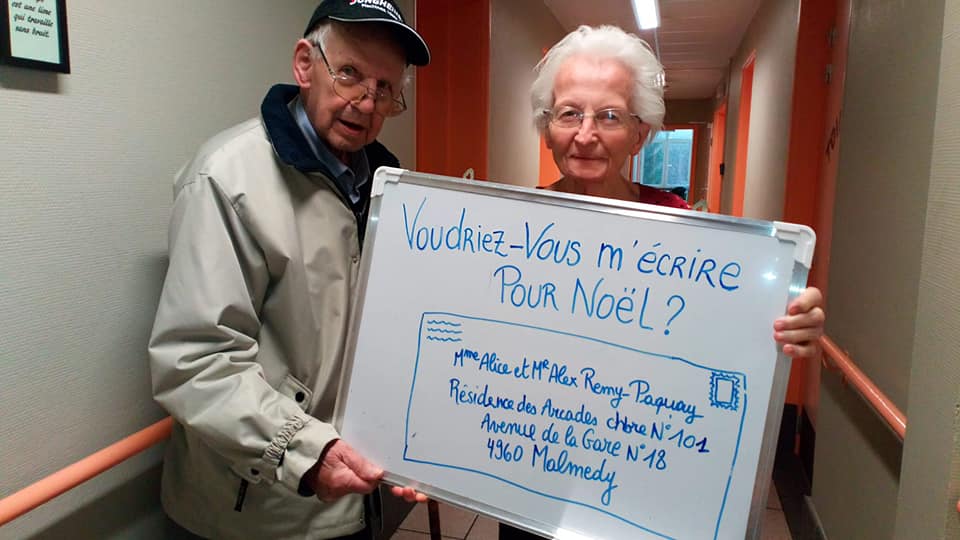 est une lime
qui travaille
sans bruit.
Voudriez-Vous m'écrire
Pour Noël ?
Mme Alice et Mr Alex Remy-Paquay
Résidence des Arcades chbre N°101
Avenue de la Gare N°18
4960 Malmedy